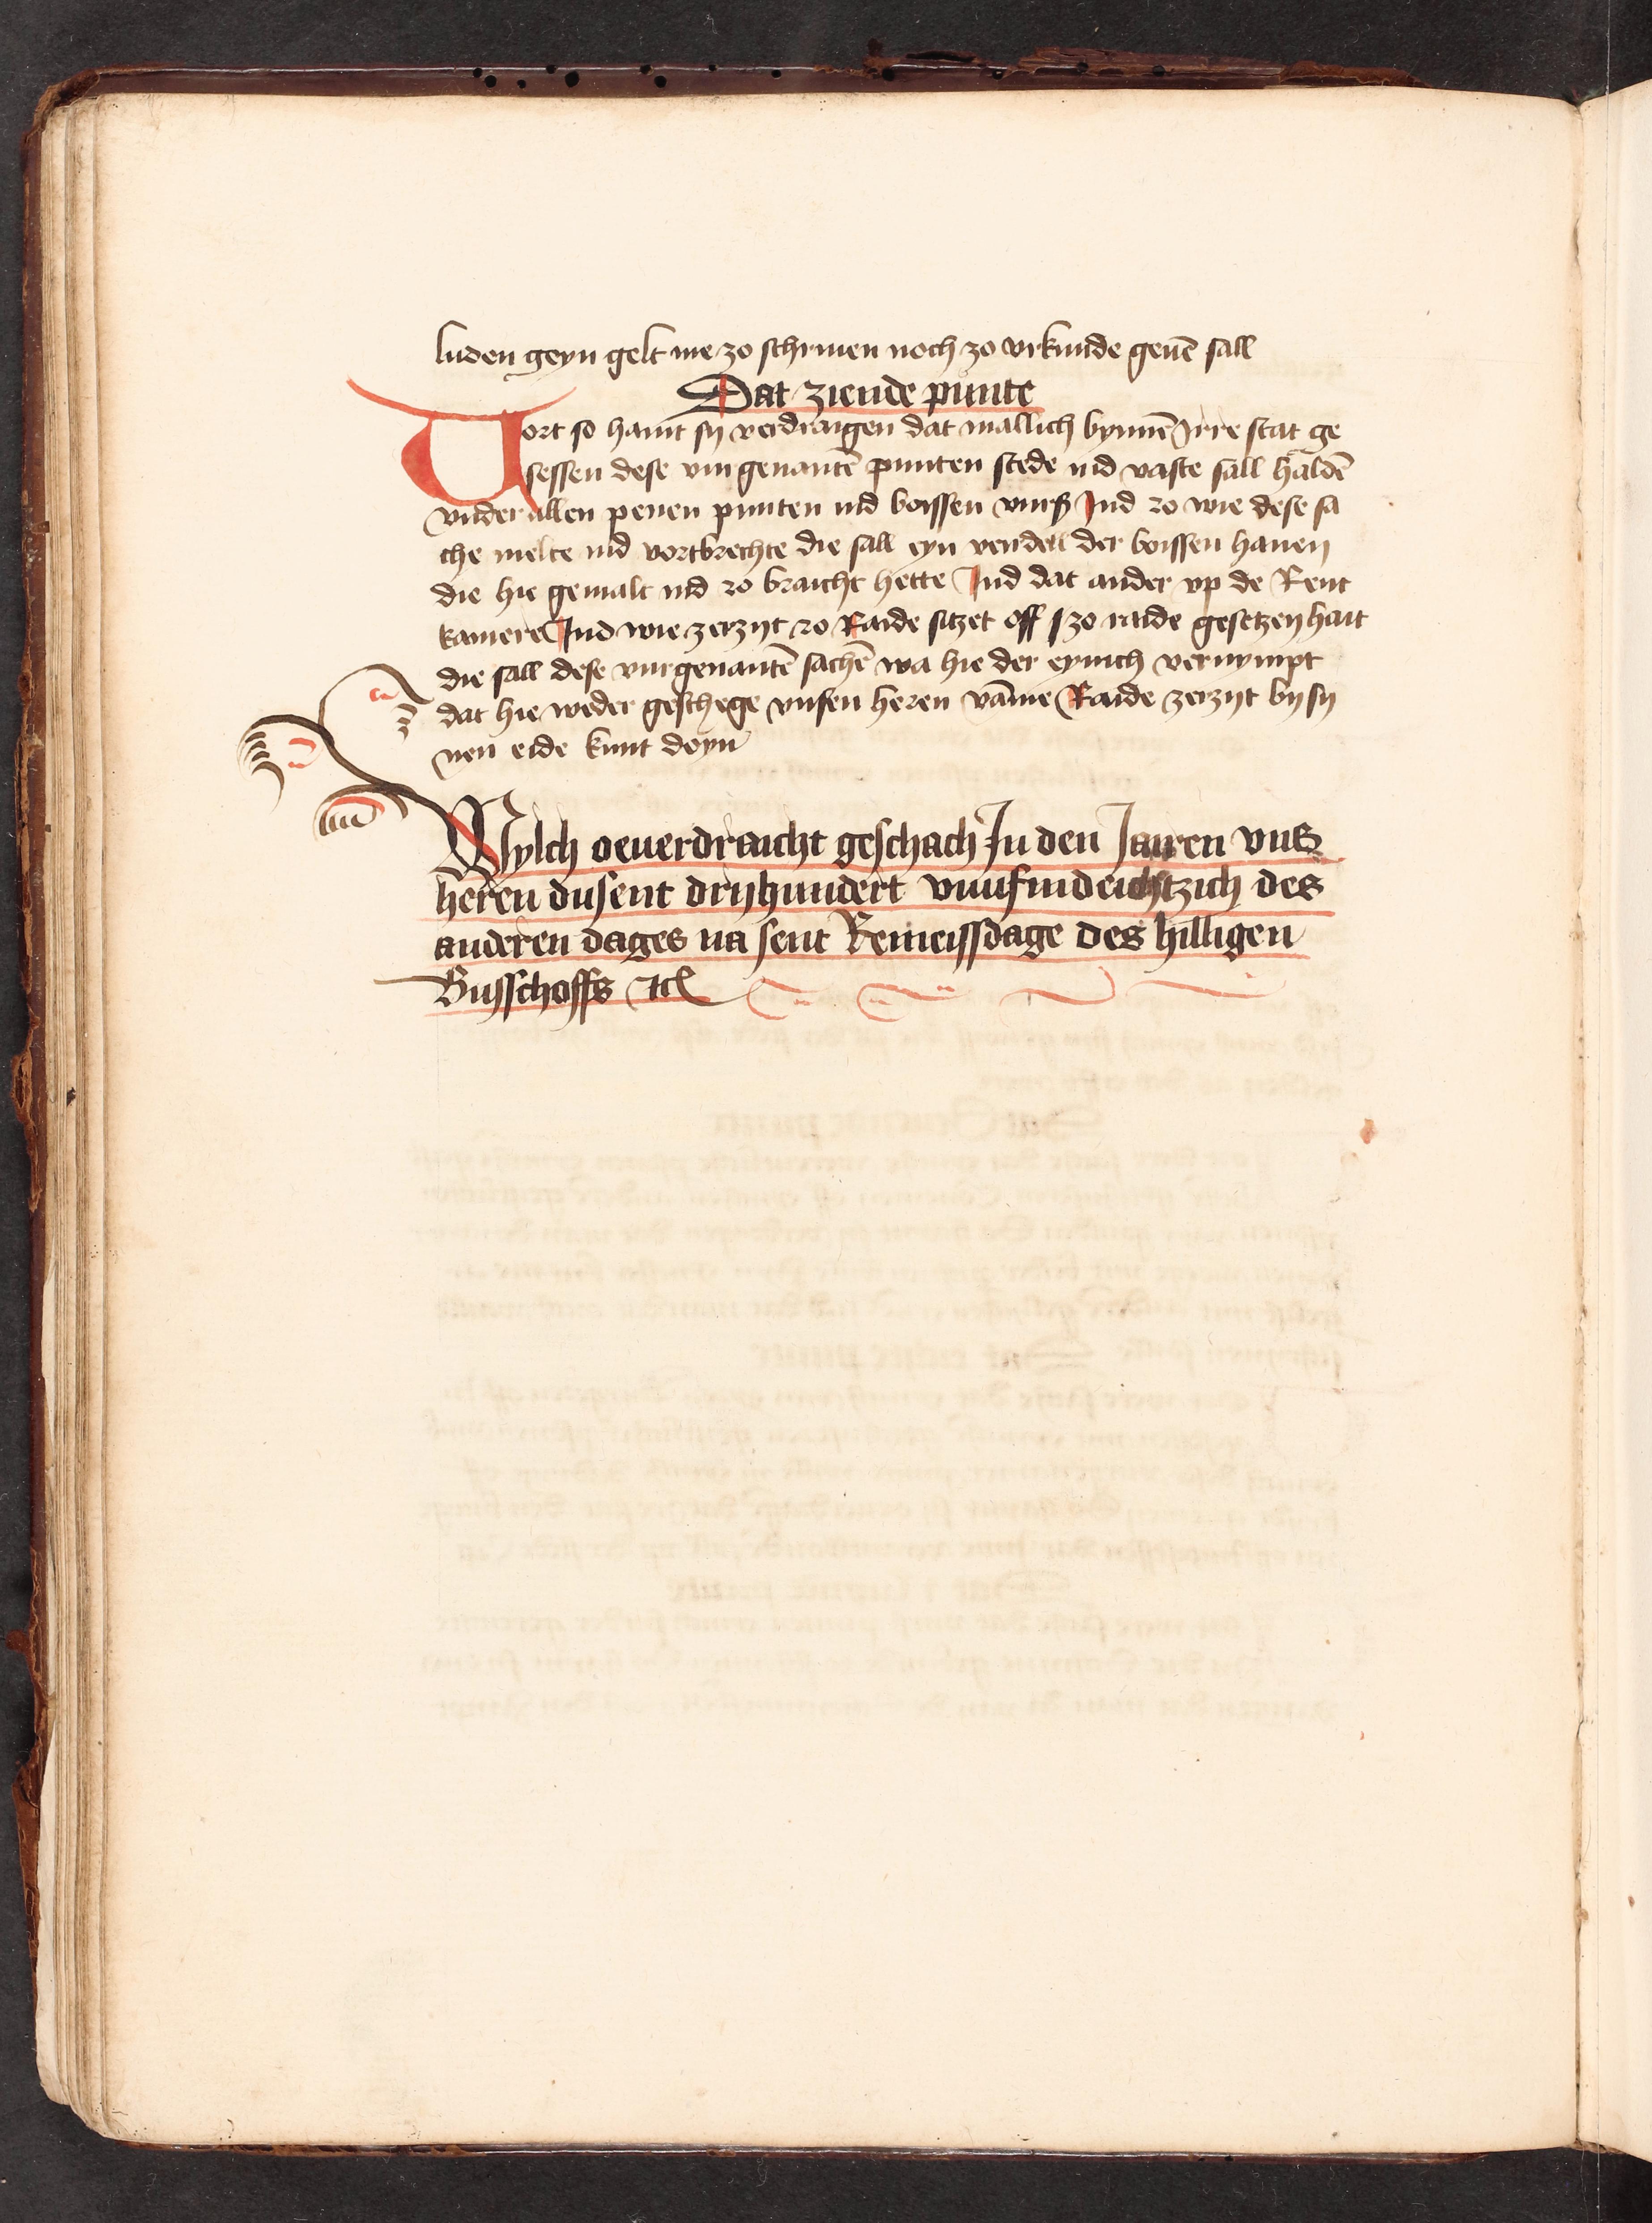 luden geyn gelt me zo schriuen noch zo vrkunde geuē sall
Dat ziende punte
Vort so haint sy verdraigen dat mallich bynnē Jrre stat ge
sessen dese vurgenantē punten stede ind vaste sall haldē
vnder allen penen punten ind boissen vurß Jnd zo wie dese sa
che melte ind vortbrechte die sall eyn verdell der boissen hauen
die hie gemalt ind zo braicht hette Jnd dat ander vp de Rent
kamere Jnd wie zerzyt zo Raide sitzet off zo raide gesetzen hait
die sall dese vurgenantē sachē wa hie der eynich vernympt
dat hie weder geschege vnsen heren vāme Raide zerzyt by sy
nen eide kunt doyn
Wylch oeuerdraicht geschach Jn den Jairen vns
heren dusent dryhundert vunfindeichtzich des
anderen dages na sent Remeissdage des hilligen
Busschoffs etc